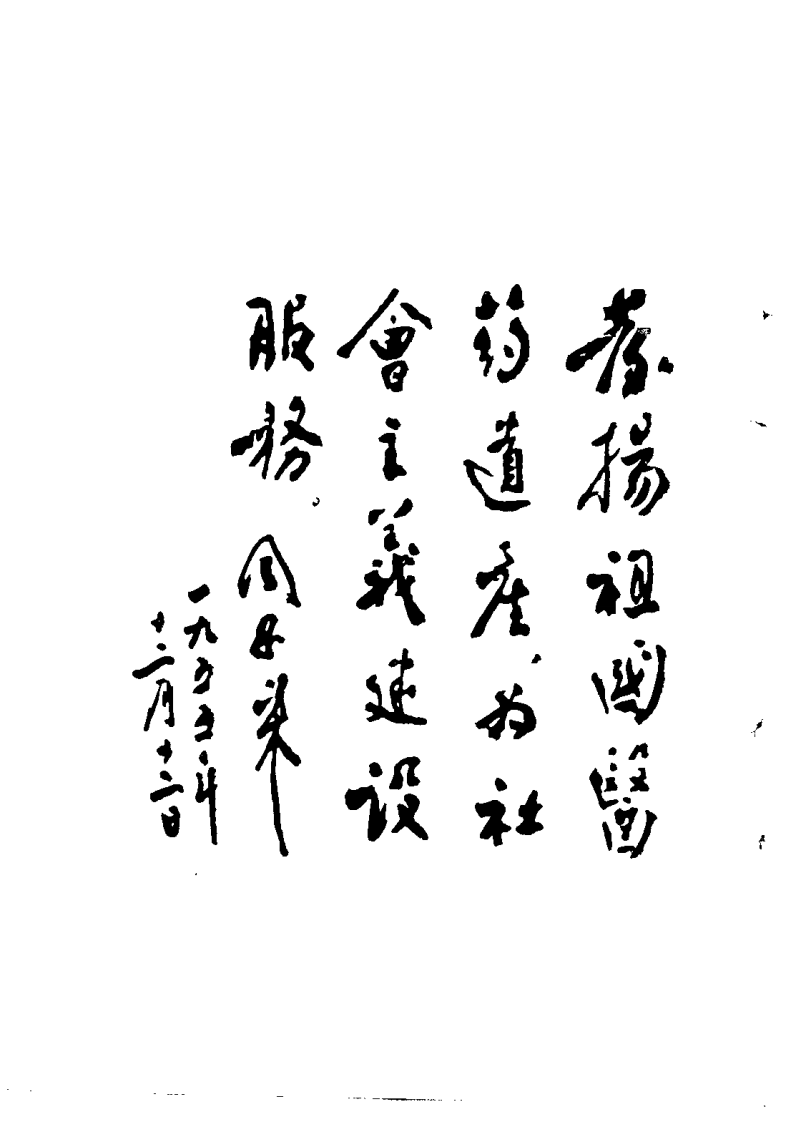 發揚祖國醫
药遺產,为社
會主義建設
服務。周恩来
一九五五年
十二月十二日